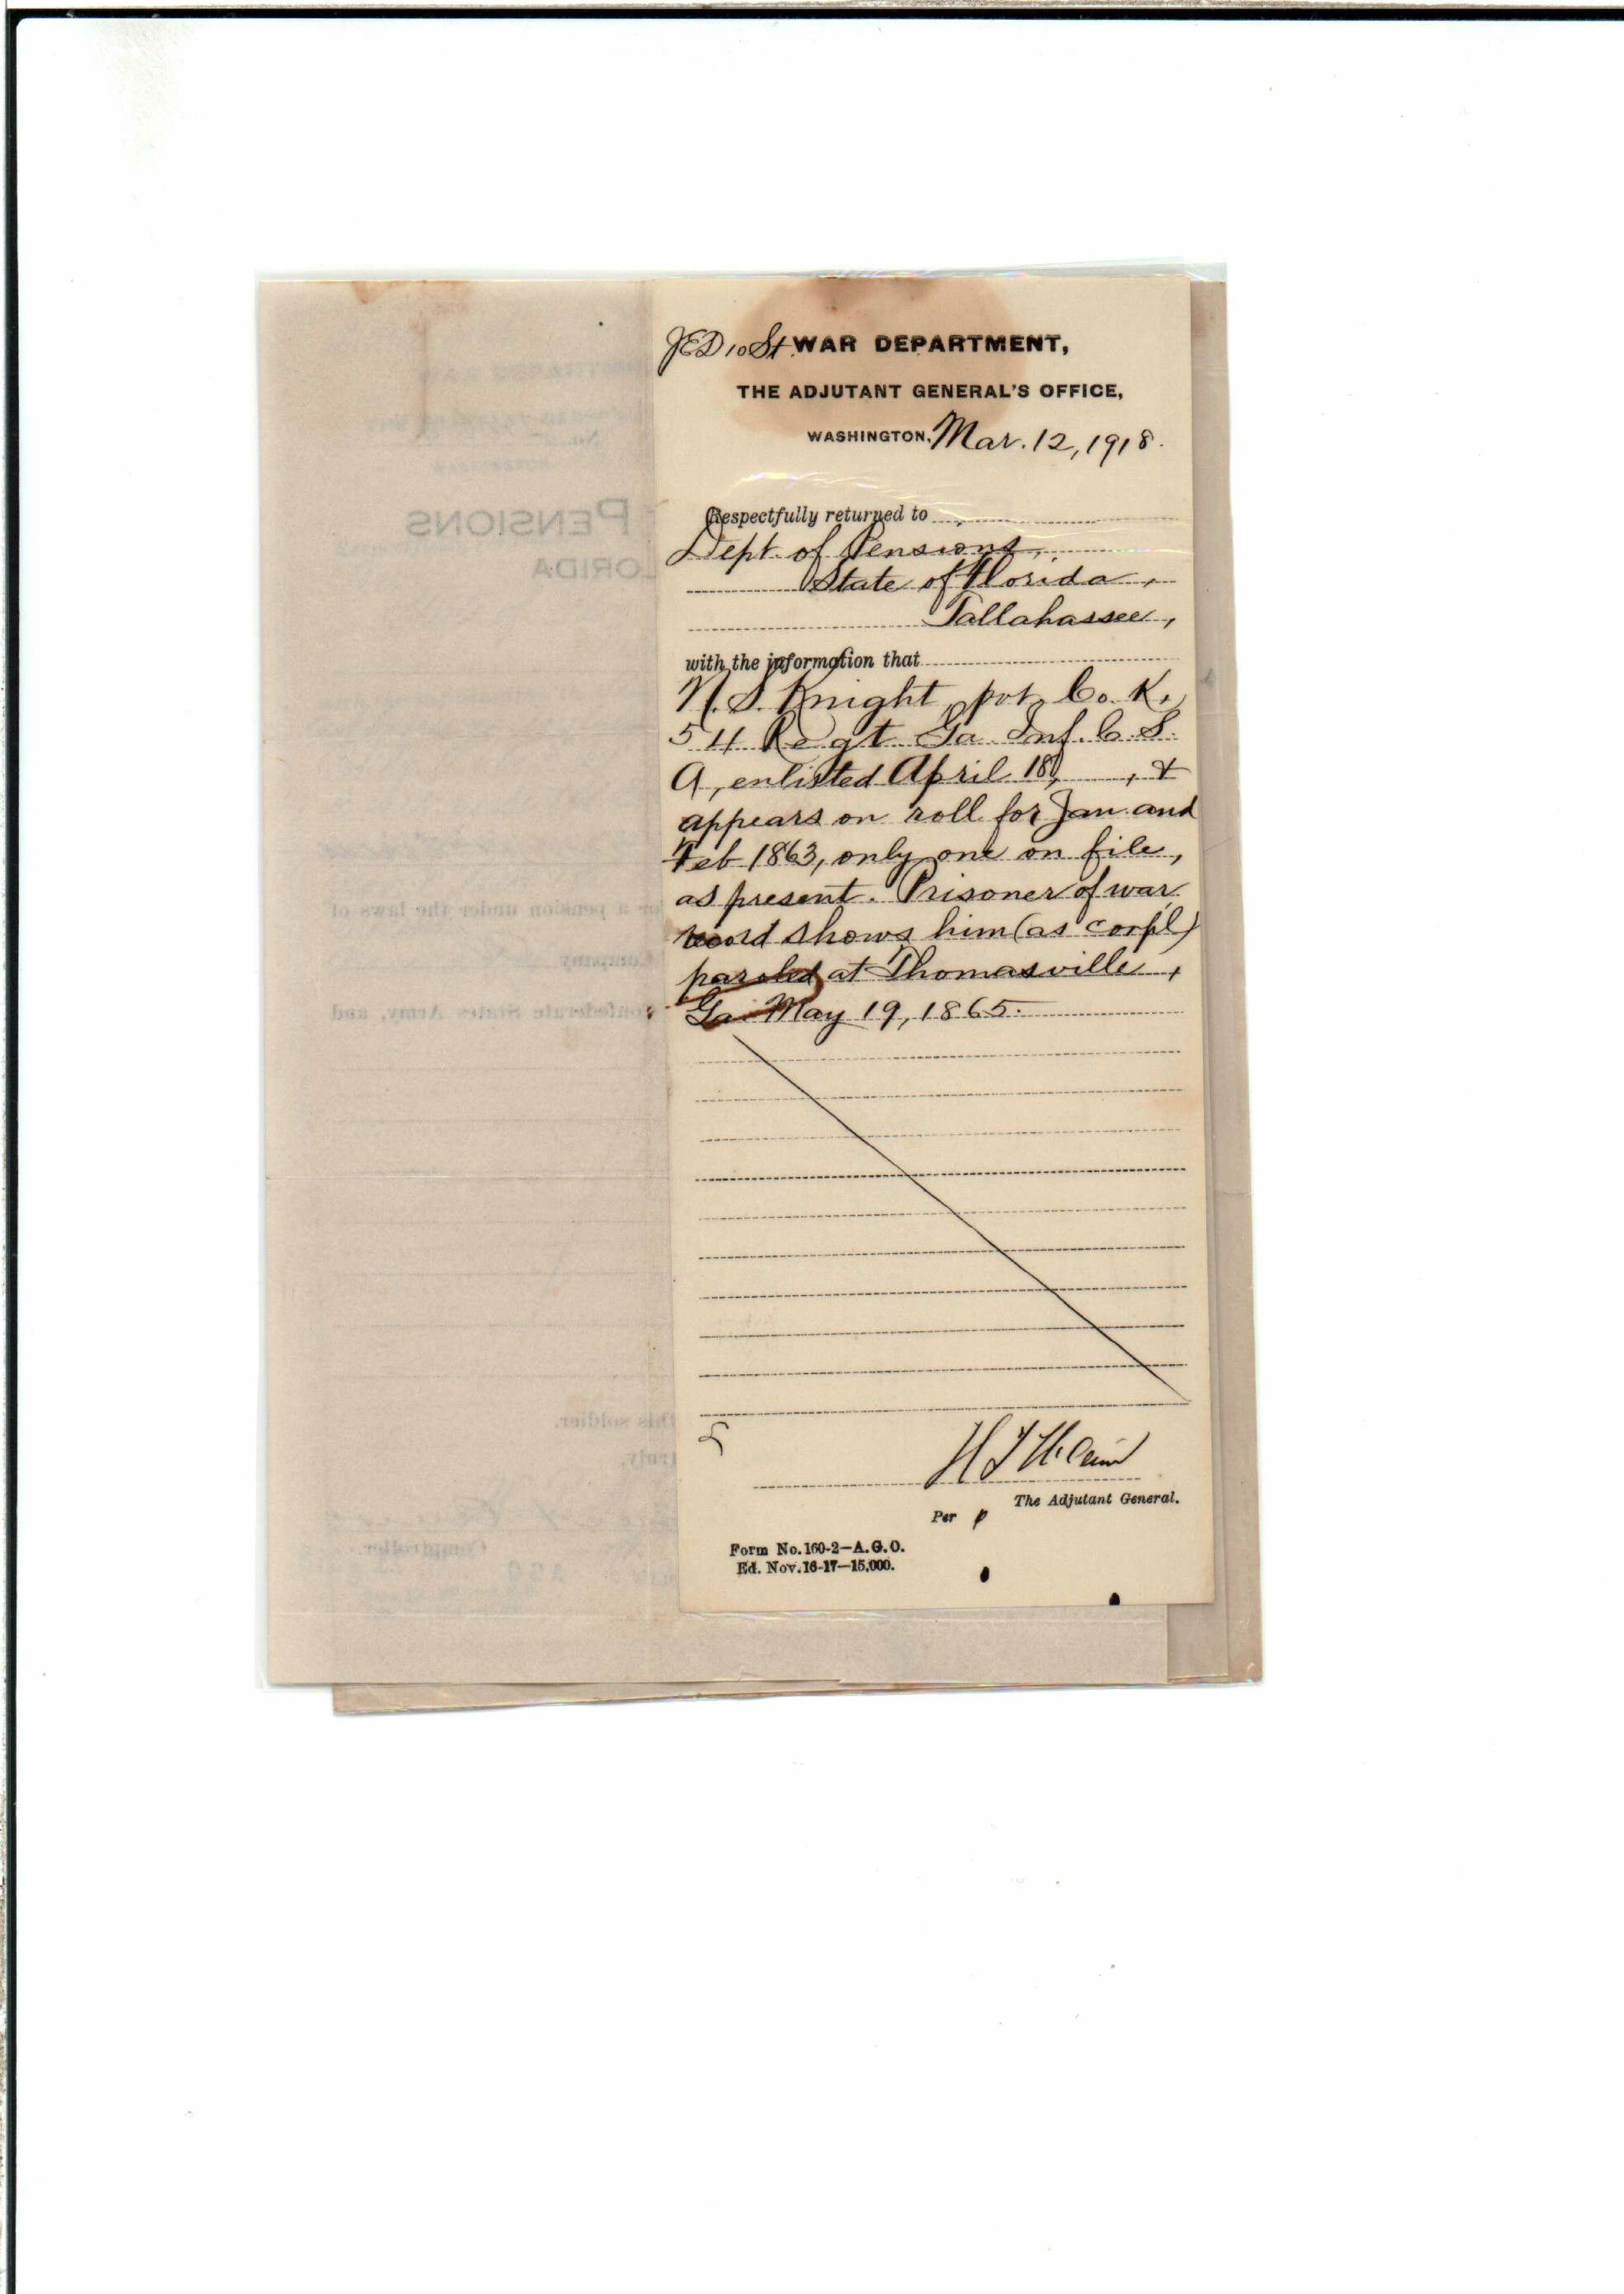 JED 10 St. WAR DEPARTMENT,
THE ADJUTANT GENERAL'S OFFICE,
WASHINGTON, Mar. 12, 1918.
Respectfully returned to
Dept. of Pensions,
State of Florida,
Tallahassee,
with the information that
N. S. Knight, pvt, Co. K,
54 Regt Ga Inf. C. S.
A, enlisted April 18, , &
appears on roll for Jan and
Feb 1863, only one on file,
as present. Prisoner of war
record shows him (as corpl)
paroled at Thomasville,
Ga May 19, 1865.
The Adjutant General.
Per
Form No. 160-2—A.G.O.
Ed. Nov. 16-17—15,000.
PENSIONS
LORIDA
No.
or a pension under the laws of
Company
onfederate States Army, and
this soldier.
truly,
Comptroller.